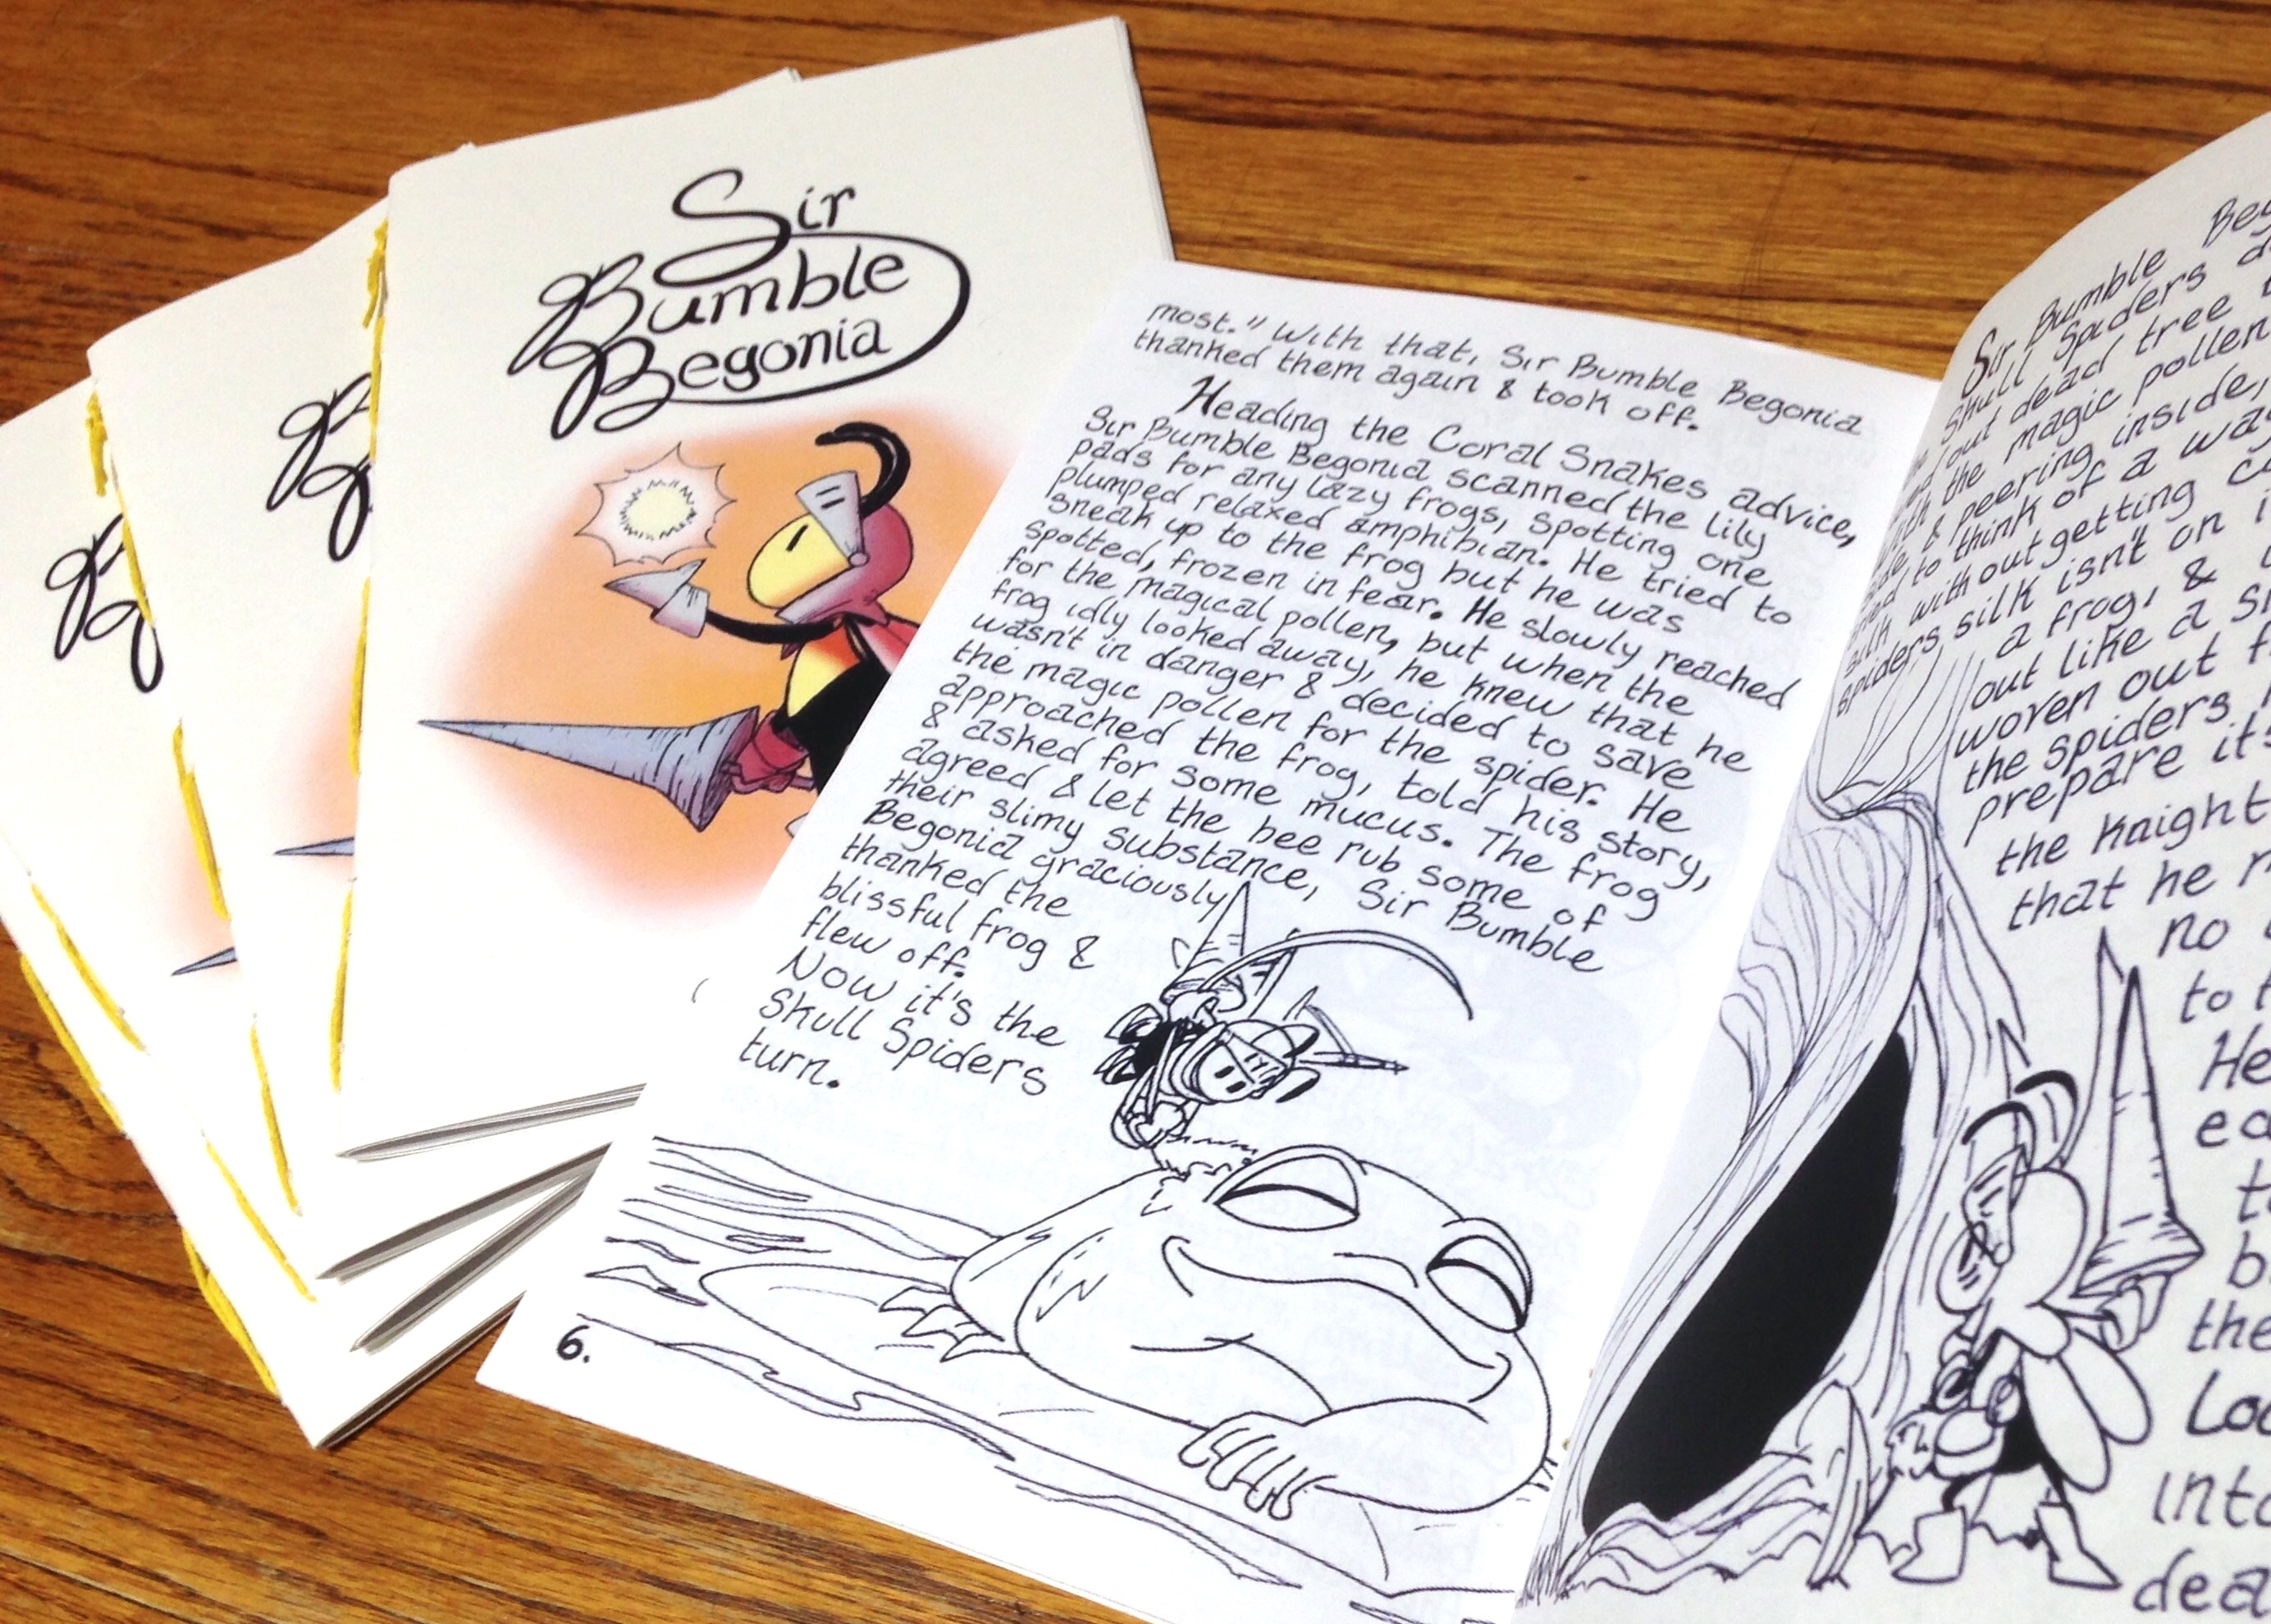 Sir
Bumble
Begonia
most." With that, Sir Bumble Begonia
thanked them again & took off.
Heading the Coral Snakes advice,
Sir Bumble Begonia scanned the lily
pads for any lazy frogs, spotting one
plumped relaxed amphibian. He tried to
sneak up to the frog but he was
spotted, frozen in fear. He slowly reached
for the magical pollen, but when the
frog idly looked away, he knew that he
wasn't in danger & decided to save
the magic pollen for the spider. He
approached the frog, told his story,
& asked for some mucus. The frog
agreed & let the bee rub some of
their slimy substance, Sir Bumble
Begonia graciously
thanked the
blissful frog &
flew off.
Now it's the
Skull Spiders
turn.
6.
Sir Bumble
Skull Spiders
out dead tree
with the magic pollen
& peering inside,
to think of a way
silk without getting
spiders silk isn't on
a frog, &
out like a
woven out
the spiders
prepare it's
the knight
that he
no
to
He
the
into